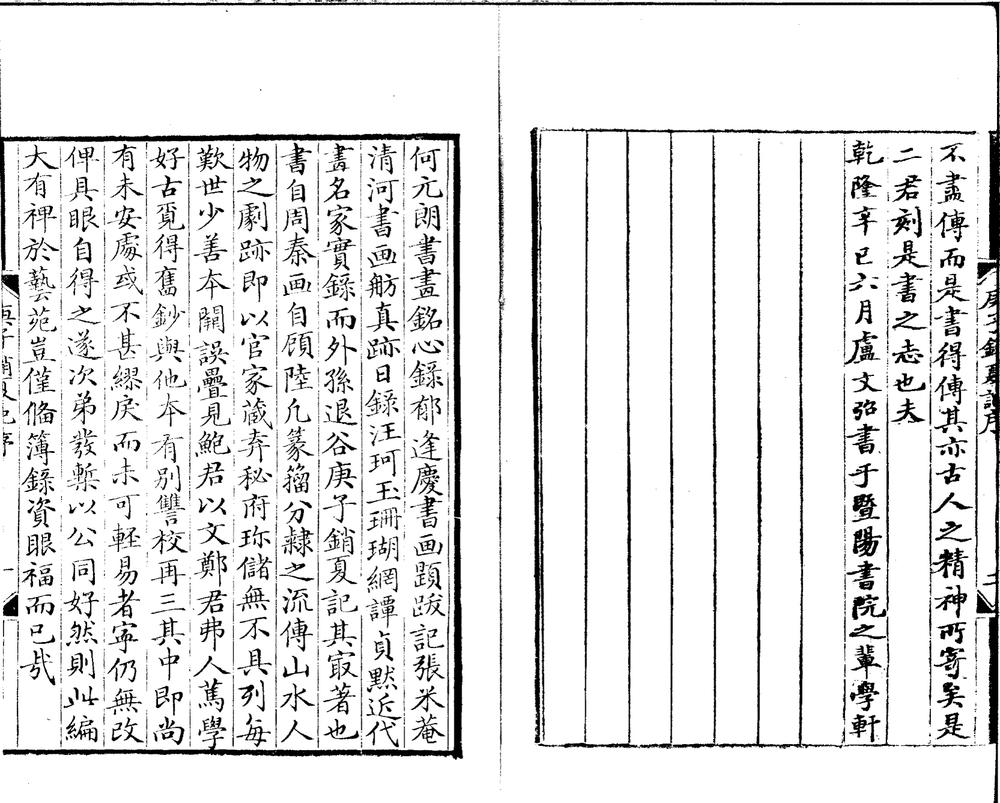 不盡傳而是書得傳其亦古人之精神所寄矣是
二君刻是書之志也夫
乾隆辛巳六月盧文弨書于暨陽書院之輩學軒
何元朗書畫銘心錄郁逢慶書画題跋記張米菴
清河書画舫真跡日錄汪珂玉珊瑚網譚貞默近代
畫名家實錄而外孫退谷庚子銷夏記其㝡著也
書自周秦画自顾陸凡篆籀分隸之流傳山水人
物之劇跡即以官家藏弆秘府珎儲無不具列每
歎世少善本闕誤疊見鮑君以文鄭君弗人篤學
好古覓得舊鈔與他本有別讐校再三其中即尚
有未安處或不甚繆戾而未可軽易者寧仍無改
俾具眼自得之遂次弟發槧以公同好然則此編
大有裨於藝苑豈僅俻簿錄資眼福而已哉